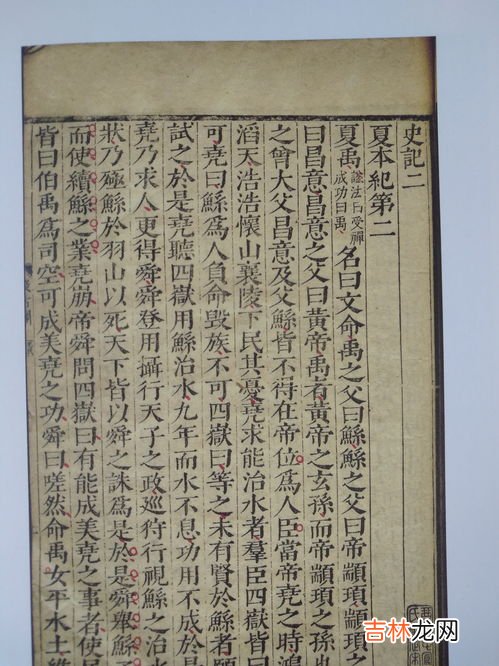 史記二
夏本紀第二
夏禹謚法曰受禪成功曰禹名曰文命禹之父曰鯀鯀之父曰帝顓頊顓頊之
曰昌意昌意之父曰黃帝禹者黃帝之玄孫而帝顓頊之孫也
之曾大父昌意及父鯀皆不得在帝位爲人臣當帝堯之時鴻
滔天浩浩懷山襄陵下民其憂堯求能治水者羣臣四嶽皆曰
可堯曰鯀爲人負命毀族不可四嶽曰等之未有賢於鯀者願
試之於是堯聽四嶽用鯀治水九年而水不息功用不成於
堯乃求人更得舜舜登用攝行天子之政巡狩行視鯀之治水
狀乃殛鯀於羽山以死天下皆以舜之誅爲是於是舜舉鯀子
而使續鯀之業堯崩帝舜問四嶽曰有能成美堯之事者使居
皆曰伯禹爲司空可成美堯之功舜曰嗟然命禹女平水土維
吉林龙网